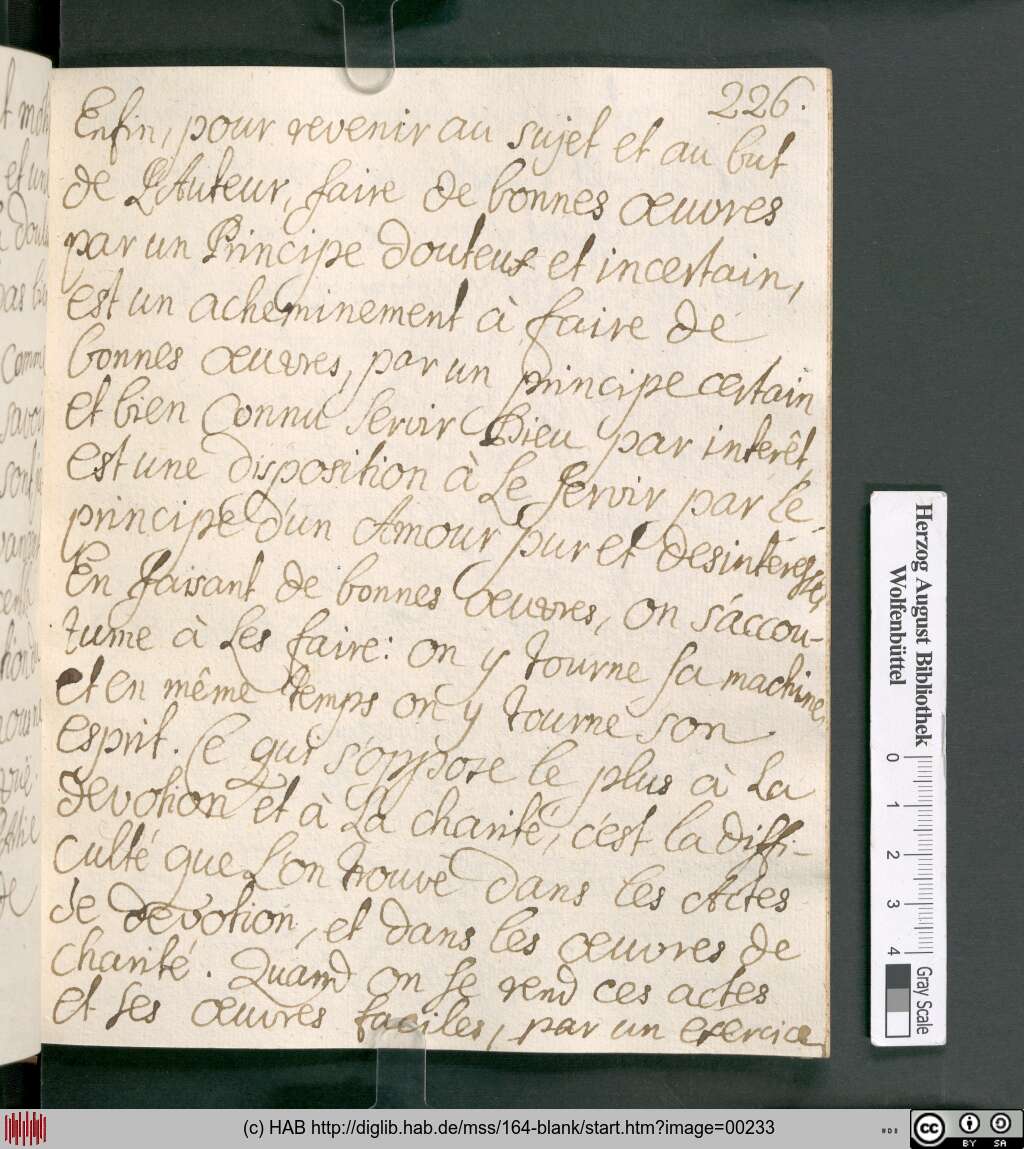 226.
Enfin, pour revenir au sujet et au but
de L'Auteur, faire de bonnes œuvres
par un Principe douteux et incertain,
est un acheminement à faire de
bonnes œuvres, par un principe certain
et bien connu servir Dieu par interêt,
est une disposition à Le servir par le
principe d'un Amour pur et desinteressé,
En faisant de bonnes œuvres, on s'accou-
tume à Les faire: on y tourne sa machine,
et en même temps on y tourne son
esprit. Ce qui s'oppose le plus à La
devotion et à La charité, c'est la diffi-
culté que L'on trouve dans les Actes
de devotion, et dans les œuvres de
charité. Quand on se rend ces actes
et ses œuvres faciles, par un exercice
Herzog August Bibliothek
Wolfenbüttel
0 1 2 3 4
Gray Scale
(c) HAB http://diglib.hab.de/mss/164-blank/start.htm?image=00233
cc BY SA